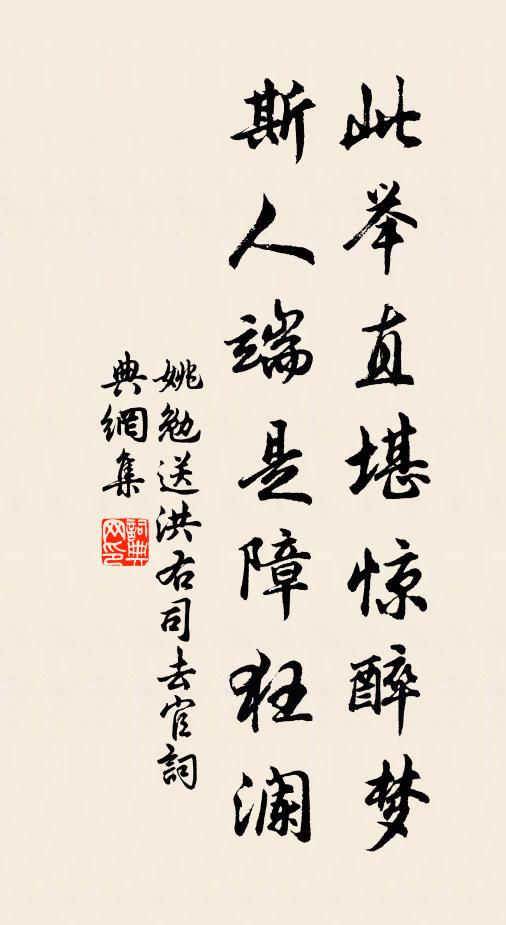 此举直堪惊醉梦
斯人端是障狂澜
姚勉送洪右司去官詞
典網集
詞典网印